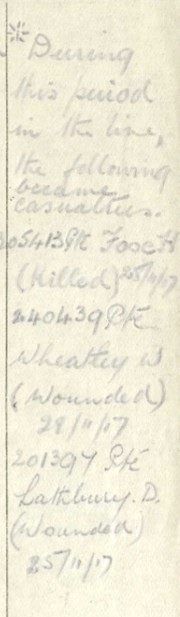 During
this period
in the line,
the following
became
casualties.
305413 Pte Fose H
(Killed) 25/11/17
240439 Pte
Wheatley W
(Wounded)
28/11/17
201397 Pte
Lathbury. D.
(Wounded)
25/11/17